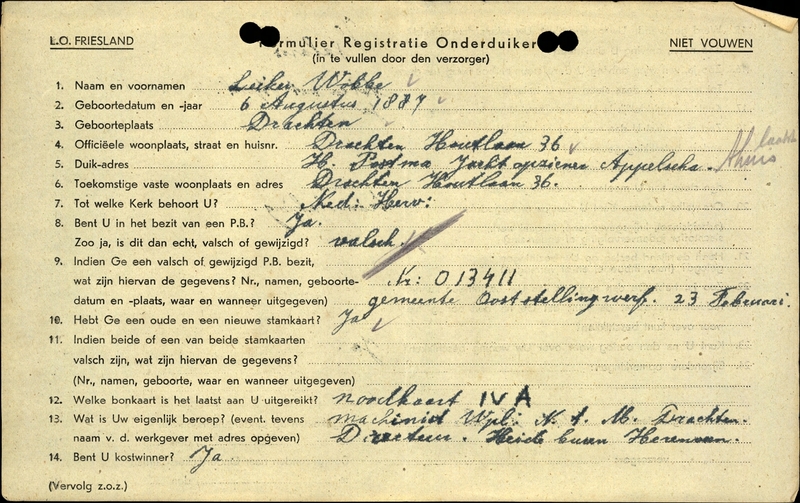 L.O. FRIESLAND
Formulier Registratie Onderduiker
NIET VOUWEN
(in te vullen door den verzorger)
1. Naam en voornamen Wobbe
2. Geboortedatum en -jaar 6 Augustus 1887
3. Geboorteplaats Drachten
4. Officiëele woonplaats, straat en huisnr. Drachten Houtlaan 36
5. Duik-adres H. Postma Jachtopziener Appelscha.
6. Toekomstige vaste woonplaats en adres Drachten Houtlaan 36.
7. Tot welke Kerk behoort U? Ned: Herv:
8. Bent U in het bezit van een P.B.? Ja.
Zoo ja, is dit dan echt, valsch of gewijzigd? valsch.
9. Indien Ge een valsch of gewijzigd P.B. bezit,
wat zijn hiervan de gegevens? Nr., namen, geboorte- Nr: 013411
datum en -plaats, waar en wanneer uitgegeven) gemeente Ooststellingwerf. 23 Februari.
10. Hebt Ge een oude en een nieuwe stamkaart? Ja
11. Indien beide of een van beide stamkaarten
valsch zijn, wat zijn hiervan de gegevens?
(Nr., namen, geboorte, waar en wanneer uitgegeven)
12. Welke bonkaart is het laatst aan U uitgereikt? noodkaart IV A
13. Wat is Uw eigenlijk beroep? (event. tevens machinist N. T. M. Drachten.
naam v. d. werkgever met adres opgeven) Directeur. Herenveen.
14. Bent U kostwinner? Ja
(Vervolg z.o.z.)